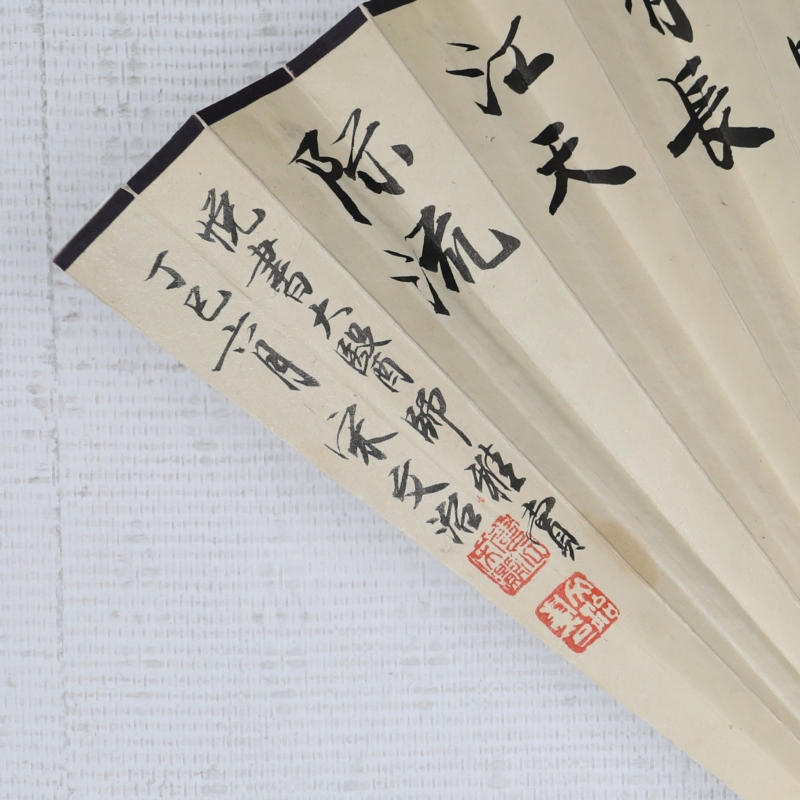 長
江天
际流
悦書大醫師雅賞
丁巳六月 宋文治